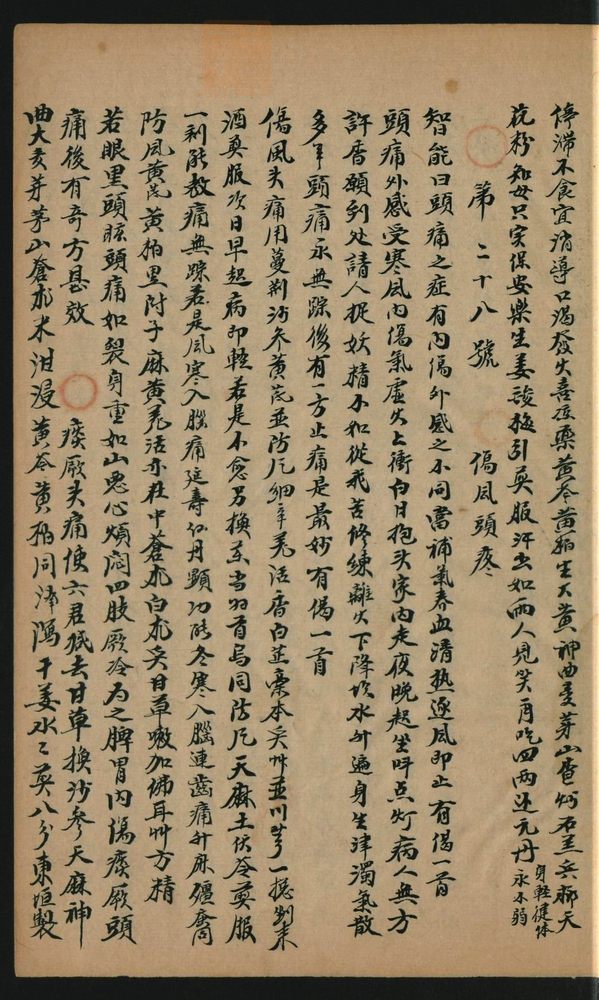 停滯不食宜消導口渴發火喜凉藥黃芩黃柏生大黃神曲麦芽山查炒石羔兵榔天
花粉知母只实保安樂生姜酸梅引煎服汗出如雨人見笑再吃四两还元丹身輕健体永不弱
第二十八號 傷風頭疼
智能曰頭痛之症有內傷外感之不同當補氣养血清热逐风即止有偈一首
頭痛外感受寒风內傷氣虛火上衝白日抱头家內走夜晚起坐呼点灯病人無方
許香願到処請人捉妖精不如從我苦修練離火下降坎水升遍身生津濁氣散
多年頭痛永無踪後有一方止痛是最妙有偈一首
傷風头痛用蔓荆沙参黃芪並防风細辛羌活香白芷藁本炙艸並川芎一揔割来
酒煎服次日早起病即輕若是不愈另換東当归首烏同防风天麻土伏苓煎服
一剂能教痛無踪若是风寒入腦痛延壽仁丹顯功能冬寒入腦連齒痛升麻殭蚕
防风黃芪黃柏黑附子麻黃羌活亦在中蒼朮白朮炙甘草嗽加佛耳艸方精
若眼黑頭眩頭痛如裂身重如山惡心煩悶四肢厥冷為之脾胃內傷痰厥頭
痛後有奇方甚效 痰厥头痛使六君祇去甘草換沙參天麻神
曲大麦芽茅山蒼朮米泔浸黃芩黃柏同泽瀉干姜水二煎八分東垣製